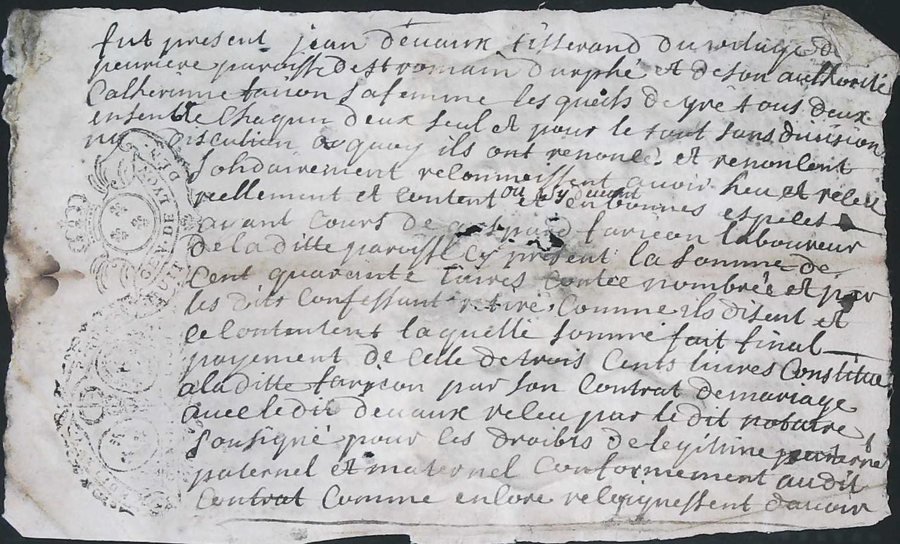 fut present jean devaux tisserand du vilage de
peuriere paroisse de st romain durphé et de son authorité
Catherinne farion sa femme les quels de gré tous deux
ensemble Chaqun deux seul et pour le tout sans division
ny discution a quoy ils ont renoncé et renoncent
Solidairement reconnoissent avoir heu et receu
reellement et content ou cy devant en bonnes especes
ayant Cours de farjeon laboureur
de la ditte paroisse Cy present la somme de
Cent quarante livres contée nombrée et par
les dits Confessant retiré, Comme ils disent et
se contentent laquelle somme fait final
payement de Celle de trois Cents livres Constitué
a la ditte farjeon par son Contrat de mariage
avec le dit devaux receu par le dit notaire
Sousigné pour ses droibts de legitime
paternel et maternel Conformement au dit
Contrat Comme encore avoir
LYON